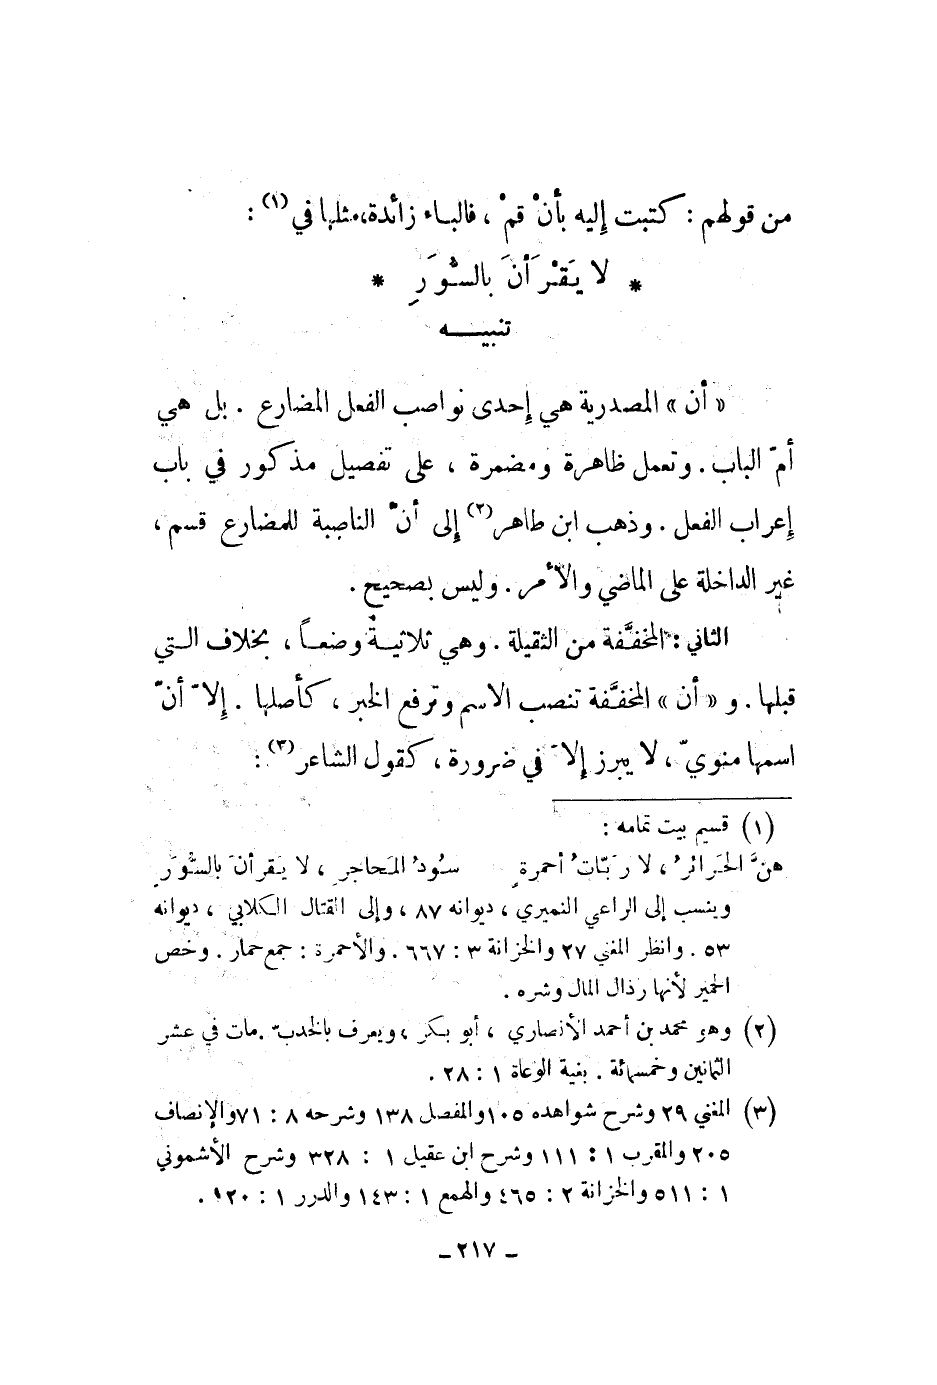 من قولهم : كتبت إليه بأنْ قمْ ، فالباء زائدة، مثلها في (١) :
* لا يَقْرَأنَ بالسُّوَرِ *
تنبيه
« أن » المصدرية هي إحدى نواصب الفعل المضارع . بل هي
أمّ الباب . وتعمل ظاهرة ومضمرة ، على تفصيل مذكور في باب
إعراب الفعل . وذهب ابن طاهر (٢) إلى أنّ الناصبة للمضارع قسم ،
غير الداخلة على الماضي والأمر . وليس بصحيح .
الثاني : المخفَّفة من الثقيلة . وهي ثلاثيةٌ وضعاً ، بخلاف التي
قبلها . و « أن » المخفَّفة تنصب الاسم وترفع الخبر ، كأصلها . إلاّ أنّ
اسمها منويّ ، لا يبرز إلاّ في ضرورة ، كقول الشاعر (٣) :
(١) قسيم بيت تمامه :
هنَّ الحَرائرُ ، لا رَبّاتُ أحمرةٍ سُودُ المَحاجرِ ، لا يَقرأنَ بالسُّوَرِ
وينسب إلى الراعي النميري ، ديوانه ٨٧ ، وإلى القتال الكلابي ، ديوانه
٥٣ . وانظر المغني ٢٧ والخزانة ٣ : ٦٦٧ . والأحمرة : جمع حمار . وخص
الحمير لأنها رذال المال وشره .
(٢) وهو محمد بن أحمد الأنصاري ، أبو بكر ، ويعرف بالخدبّ . مات في عشر
الثمانين وخمسمائة . بغية الوعاة ١ : ٢٨ .
(٣) المغني ٢٩ وشرح شواهده ١٠٥ والمفصل ١٣٨ وشرحه ٨ : ٧١ والإنصاف
٢٠٥ والمقرب ١ : ١١١ وشرح ابن عقيل ١ : ٣٢٨ وشرح الأشموني
١ : ٥١١ والخزانة ٢ : ٤٦٥ والهمع ١ : ١٤٣ والدرر ١ : ١٢٠ .
ـ ٢١٧ ـ